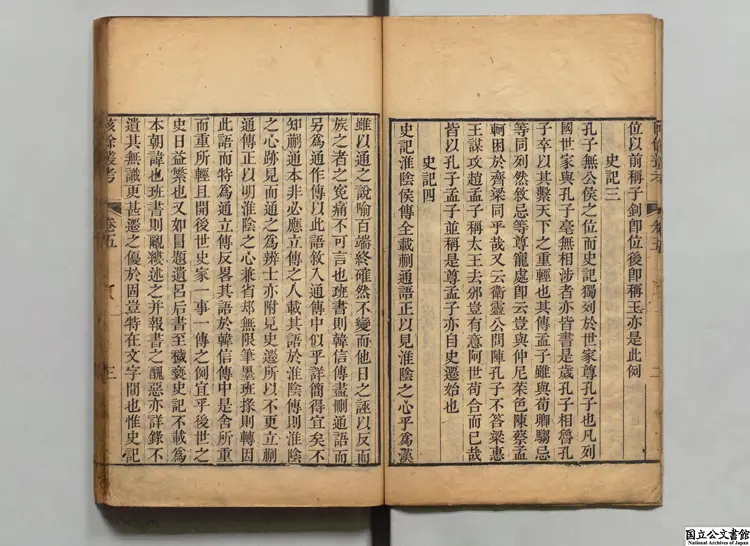 位以前稱子釗即位後即稱王亦是此例
史記三
孔子無公侯之位而史記獨列於世家尊孔子也凡列
國世家與孔子毫無相涉者亦皆書是歲孔子相魯孔
子卒以其繫天下之重輕也其傳孟子雖與荀卿騶忌
等同列然敘忌等尊寵處即云豈與仲尼菜色陳蔡孟
軻困於齊梁同乎哉又云衛靈公問陳孔子不答梁惠
王謀攻趙孟子稱太王去邠豈有意阿世苟合而已哉
皆以孔子孟子並稱是尊孟子亦自史遷始也
史記四
史記淮陰侯傳全載蒯通語正以見淮陰之心乎為漢
雖以通之說喻百端終確然不變而他日之誣以反而
族之者之冤痛不可言也班書則韓信傳盡刪通語而
另為通作傳以此語敘入通傳中似乎詳簡得宜矣不
知蒯通本非必應立傳之人載其語於淮陰傳則淮陰
之心跡見而通之為辨士亦附見史遷所以不更立蒯
通傳正以明淮陰之心兼省卻無限筆墨班掾則轉因
此語而特為通立傳反畧其語於韓信傳中是舍所重
而重所輕且開後世史家一事一傳之例宜乎後世之
史日益繁也又如冒頓遺呂后書至穢褻史記不載為
本朝諱也班書則覼縷述之并報書之醜惡亦詳錄不
遺其無識更甚遷之優於固豈特在文字間也惟史記
陔餘叢考
卷五
三
国立公文書館
National Archives of Japan